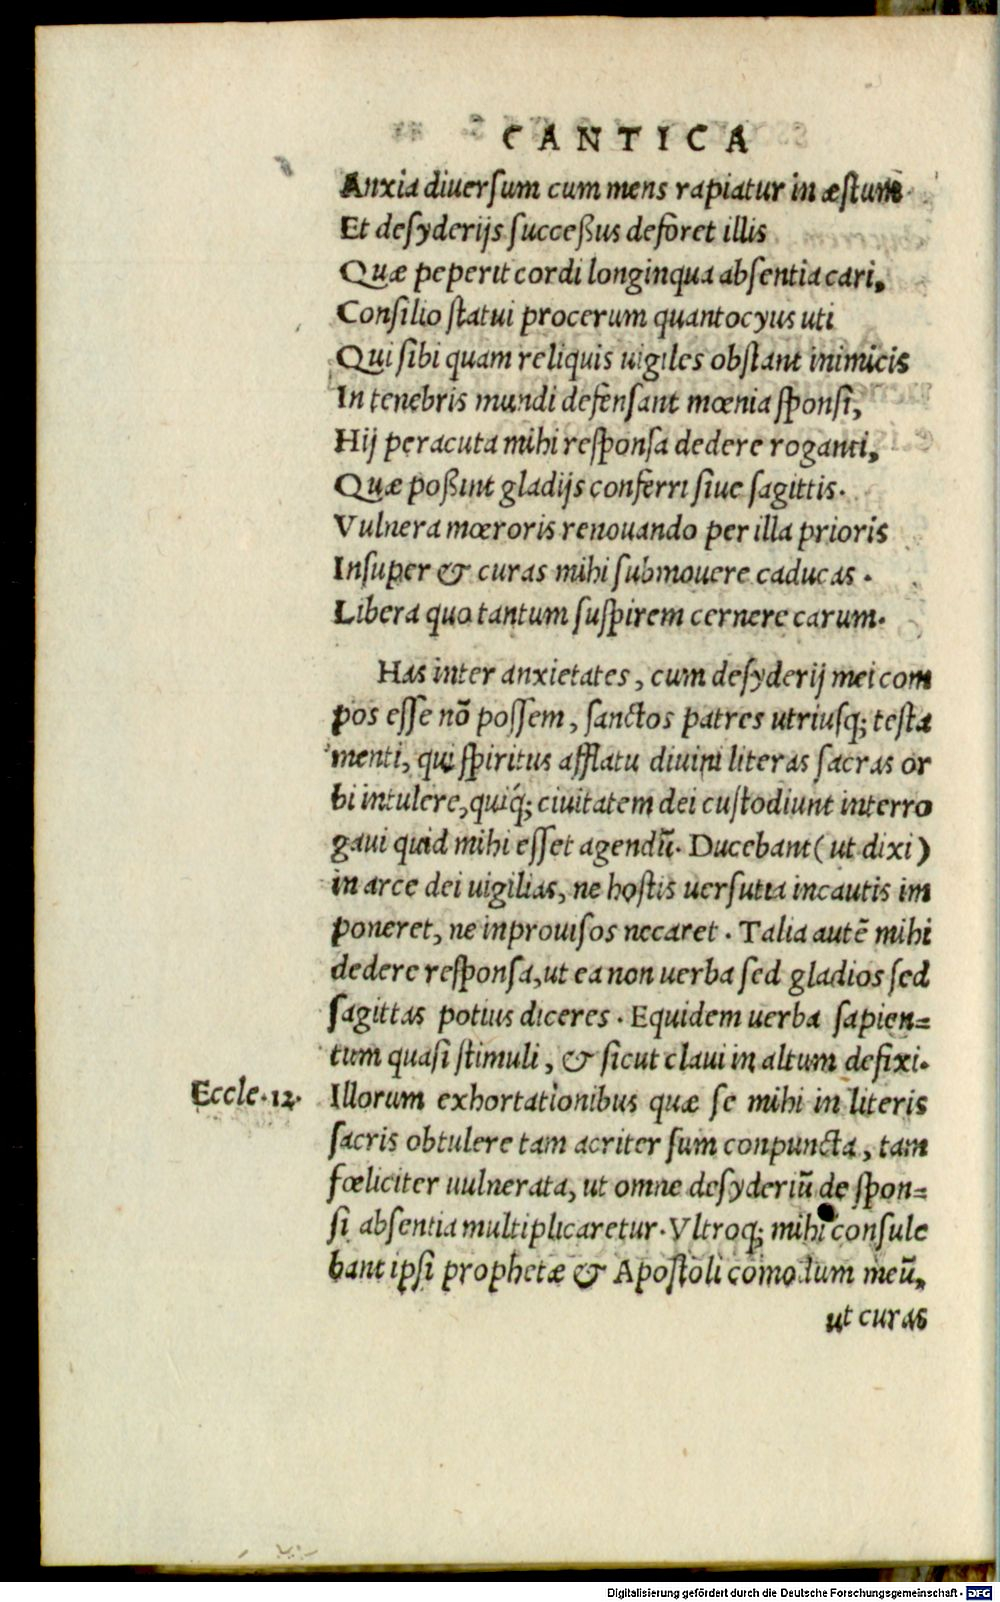 CANTICA
Anxia diuersum cum mens rapiatur in æstum
Et desyderijs succeßus deforet illis
Quæ peperit cordi longinqua absentia cari,
Consilio statui procerum quantocyus uti
Qui sibi quam reliquis uigiles obstant inimicis
In tenebris mundi defensant mœnia sponsi,
Hij peracuta mihi responsa dedere roganti,
Quæ poßint gladijs conferri siue sagittis.
Vulnera mœroris renouando per illa prioris
Insuper & curas mihi submouere caducas.
Libera quo tantum suspirem cernere carum.
Has inter anxietates, cum desyderij mei com
pos esse nõ possem, sanctos patres utriusq; testa
menti, qui spiritus afflatu diuini literas sacras or
bi intulere, quiq́; ciuitatem dei custodiunt interro
gaui quid mihi esset agendũ. Ducebant (ut dixi)
in arce dei uigilias, ne hostis uersutia incautis im
poneret, ne inprouisos necaret. Talia autẽ mihi
dedere responsa, ut ea non uerba sed gladios sed
sagittas potius diceres. Equidem uerba sapien=
tum quasi stimuli, & sicut claui in altum defixi.
Eccle.12. Illorum exhortationibus quæ se mihi in literis
sacris obtulere tam acriter sum conpuncta, tam
fœliciter uulnerata, ut omne desyderiũ de spon=
si absentia multiplicaretur. Vltroq; mihi consule
bant ipsi prophetæ & Apostoli cõmodum meũ,
ut curas
Digitalisierung gefördert durch die Deutsche Forschungsgemeinschaft - DFG